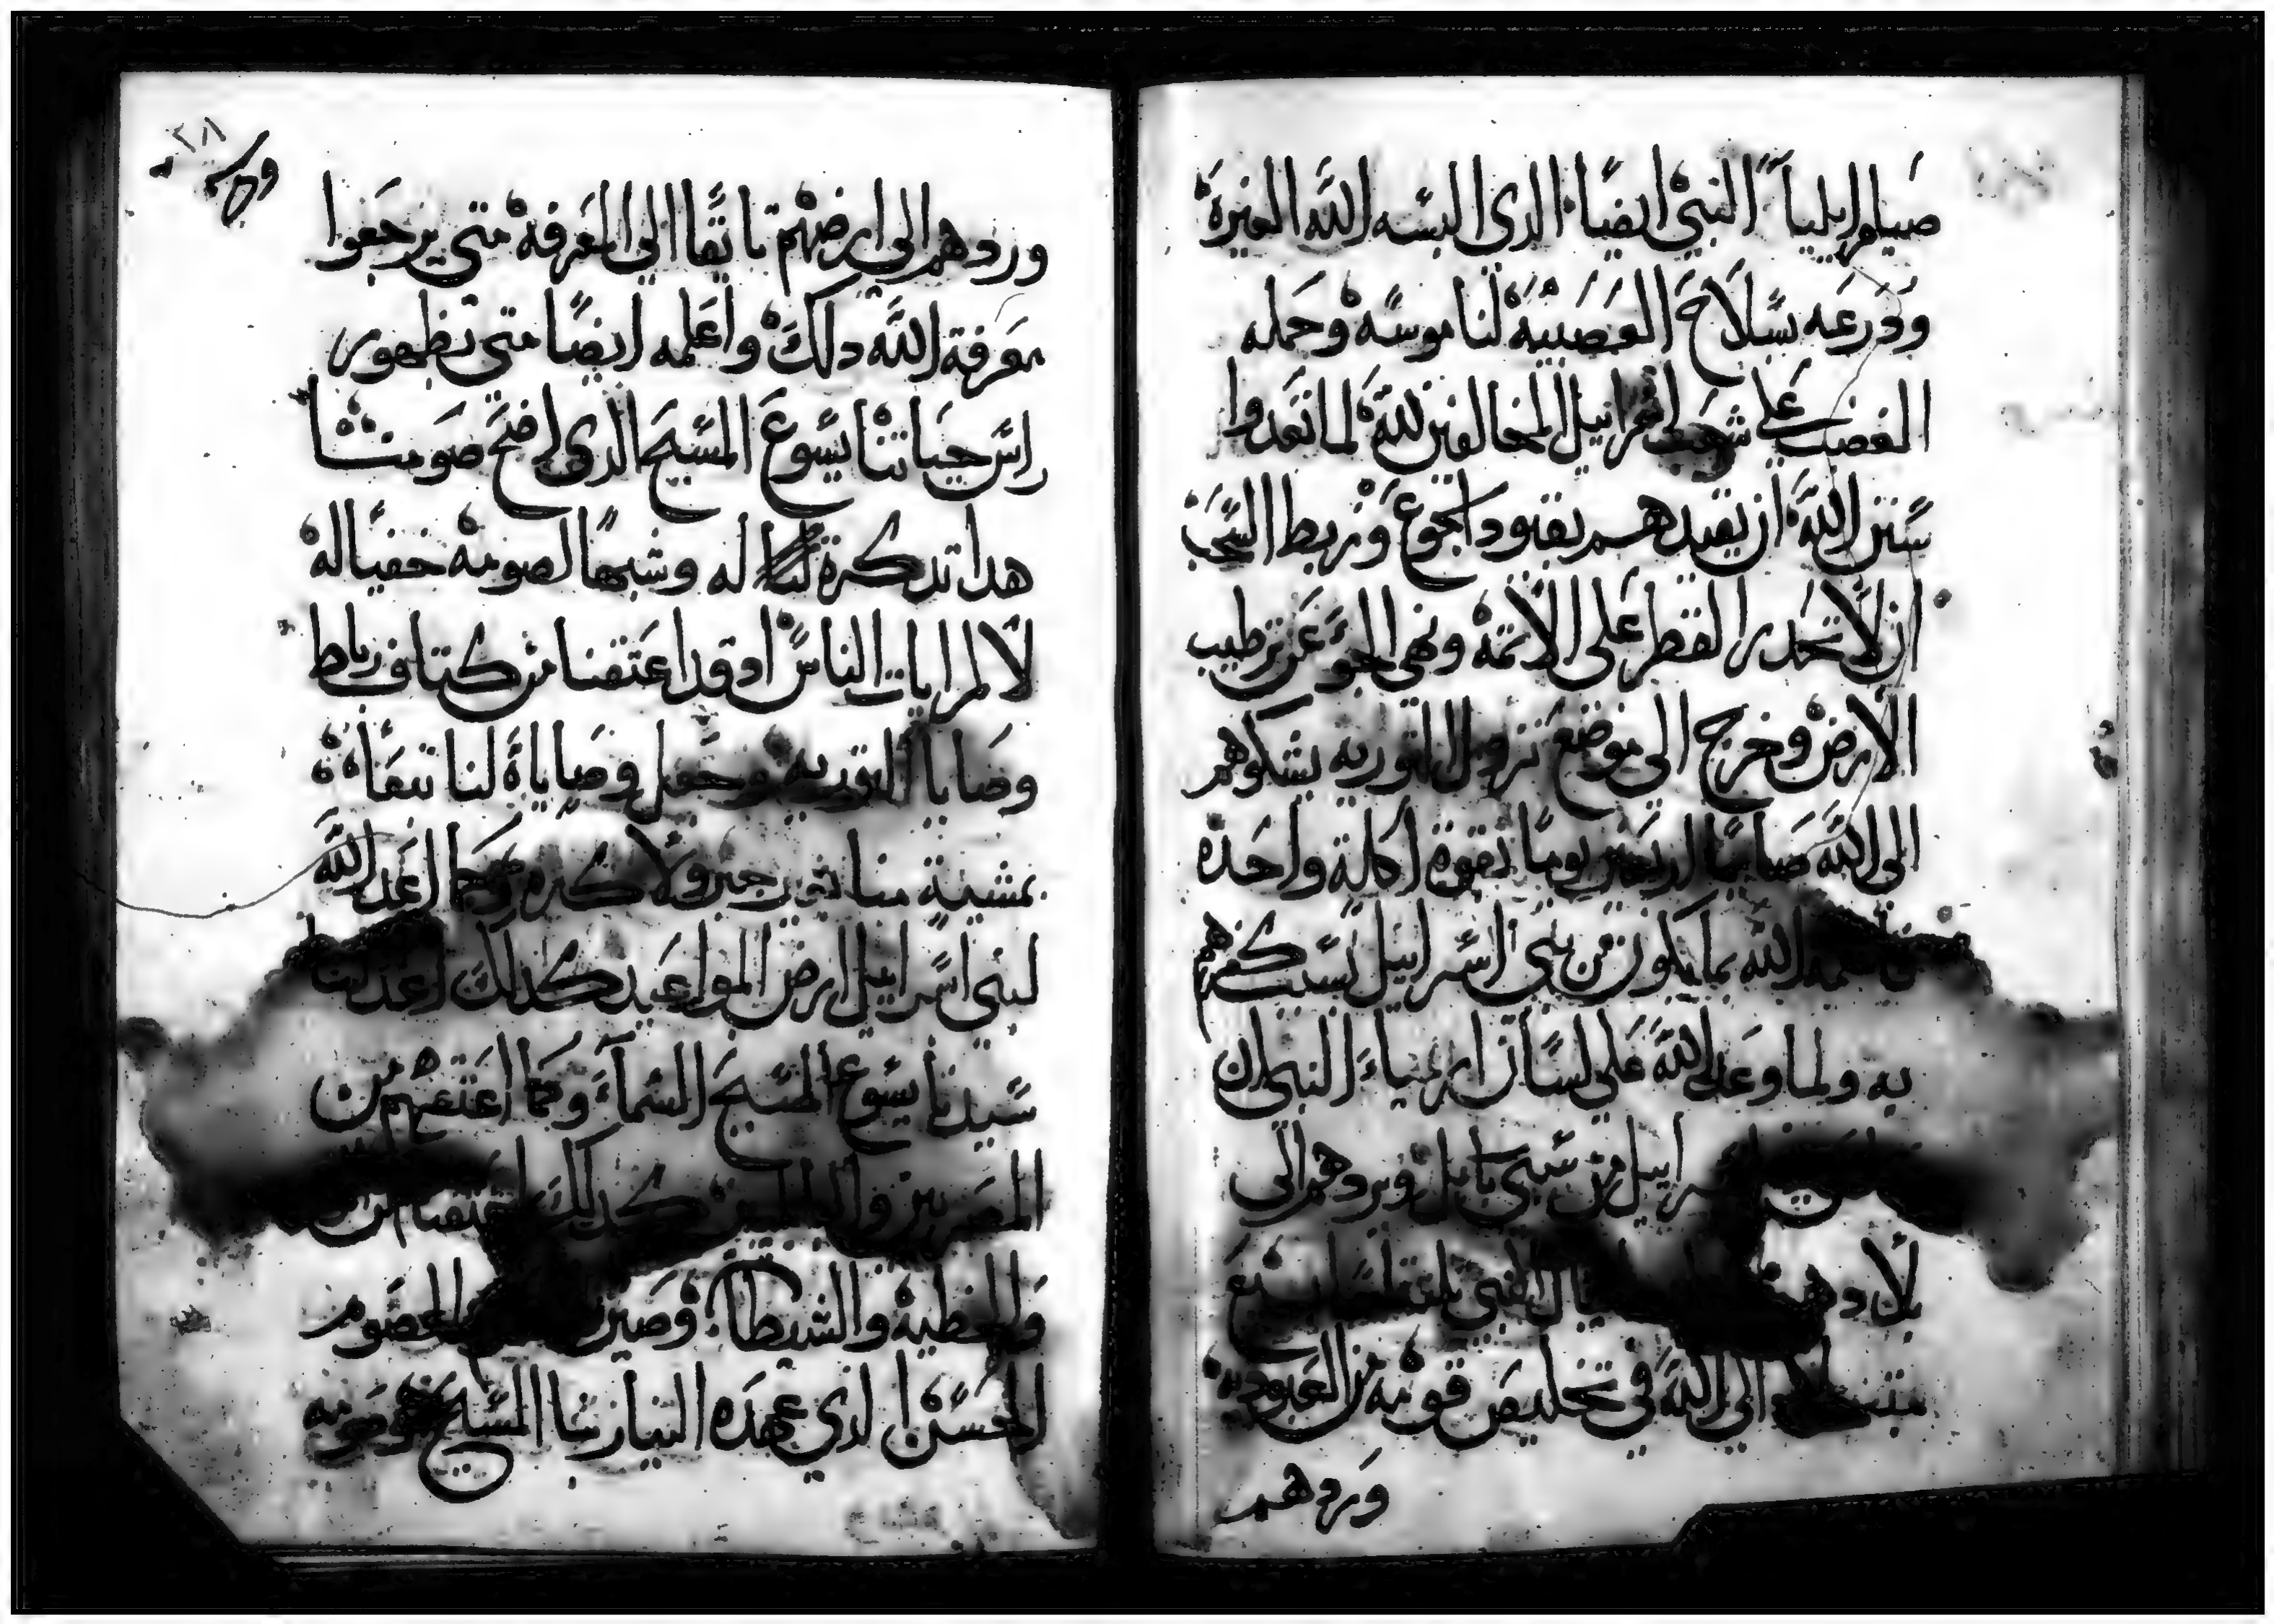 صيام ايلياً النبي ايضًا الدى البسه الله الغيرة
ودرعه بسلاح العصبية لناموسه وحمله
الغضب على شعب اسراييل المخالفين لله لما تعدوا
سنن الله ان يقيدهم بقيود الجوع وربط السحب
ان لا تحدر القطر على الاتمة ونهى الجو عن ترطيب
الارض وخرج الى موضع نزول التوريه يشكوهم
الى الله صايمًا اربعين يومًا بقوة اكلة واحدة
الله بما يكون من بني اسراييل يستكفرهم
به ولما وعد الله على لسان ارمياء النبي ان
اسراييل من سبي بابل ويردهم الى
النبي
الى الله في تخليص قومه من العبودية
وردهم
وردهم الى ارضهم تايقًا الى المعرفة متى يرجعوا
بمعرفة الله دلك واعلمه ايضًا متى تظهور
راس حياتنا يسوع المسيح الدى افتح صومنا
هدا تدكرة له وشبهًا لصومه خفيا له
لا لمرايات الناس اد وقد اعتقنا من كتاف رباط
وصايا التوريه وجعل وصاياة لنا تبقاة
بمشية منا بغير جبر ولا كره وكما اعد الله
لبني اسراييل ارض المواعيد كدلك اعد لنا
سيدنا يسوع المسيح السماء وكما اعتقهم من
المصريين كدلك اعتقنا من
والخطية والشيطان وصير الصوم
الحسن ادي عهده الينا ربنا المسيح